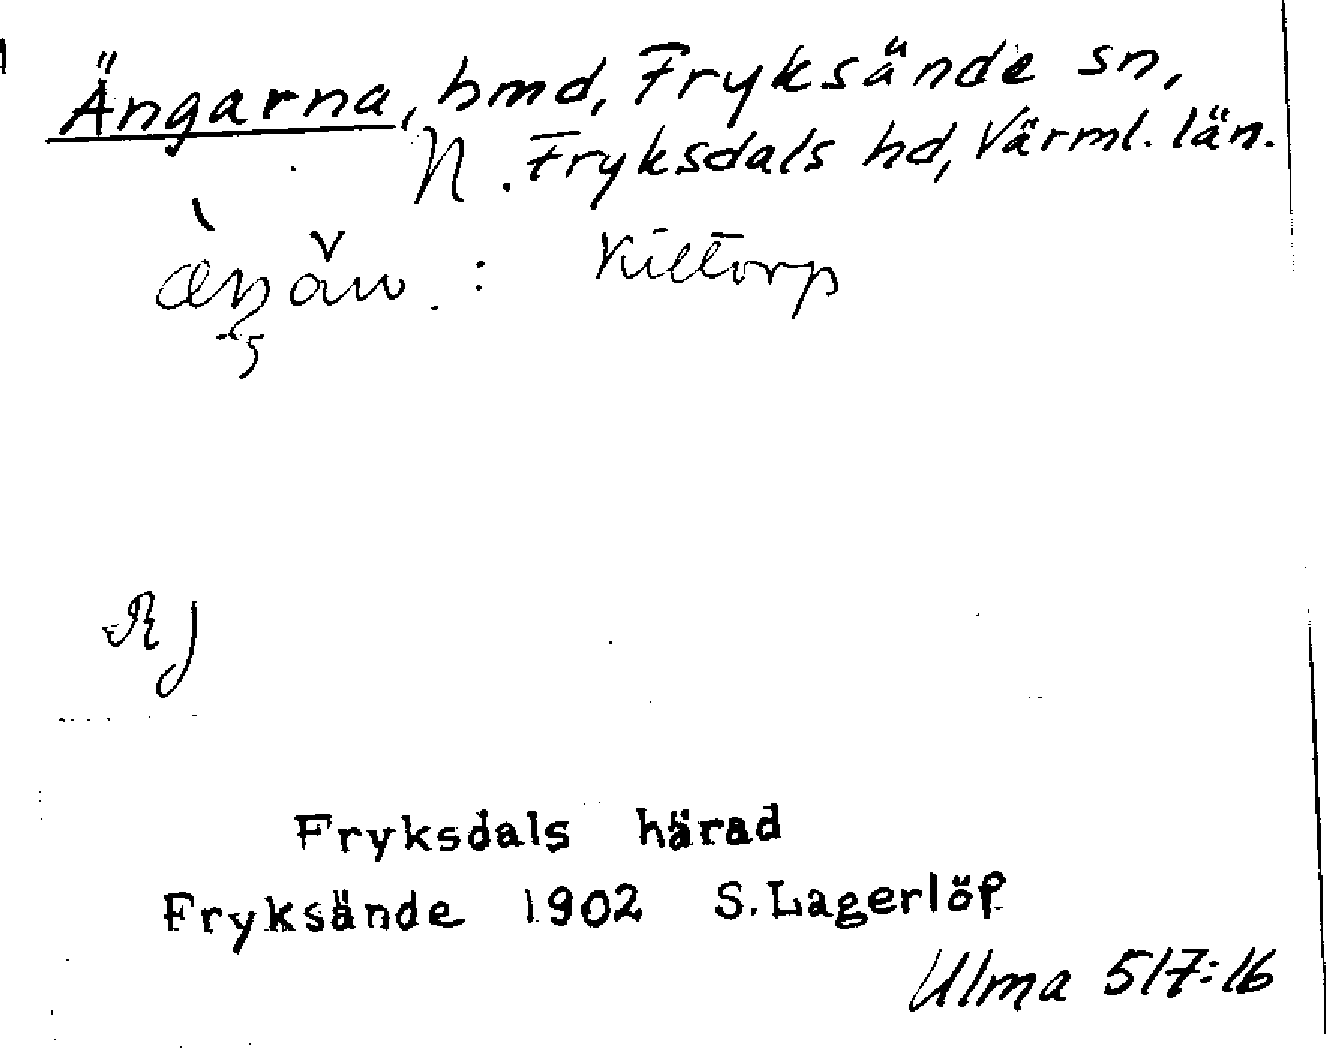 Ängarna, hmd, Fryksände sn,
N. Fryksdals hd, Värml. län.
: Kiltorp
RJ
Fryksdals härad
Fryksände 1902 S. Lagerlöf
Ulma 517:16